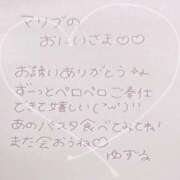 マリブの
おにいさま♡♡
お誘いありがとう
ずーっとペロペロご奉仕
できて嬉しい(''ω'')!!
あのパスタ食べてみてね!
また会おうね♡
ゆずる